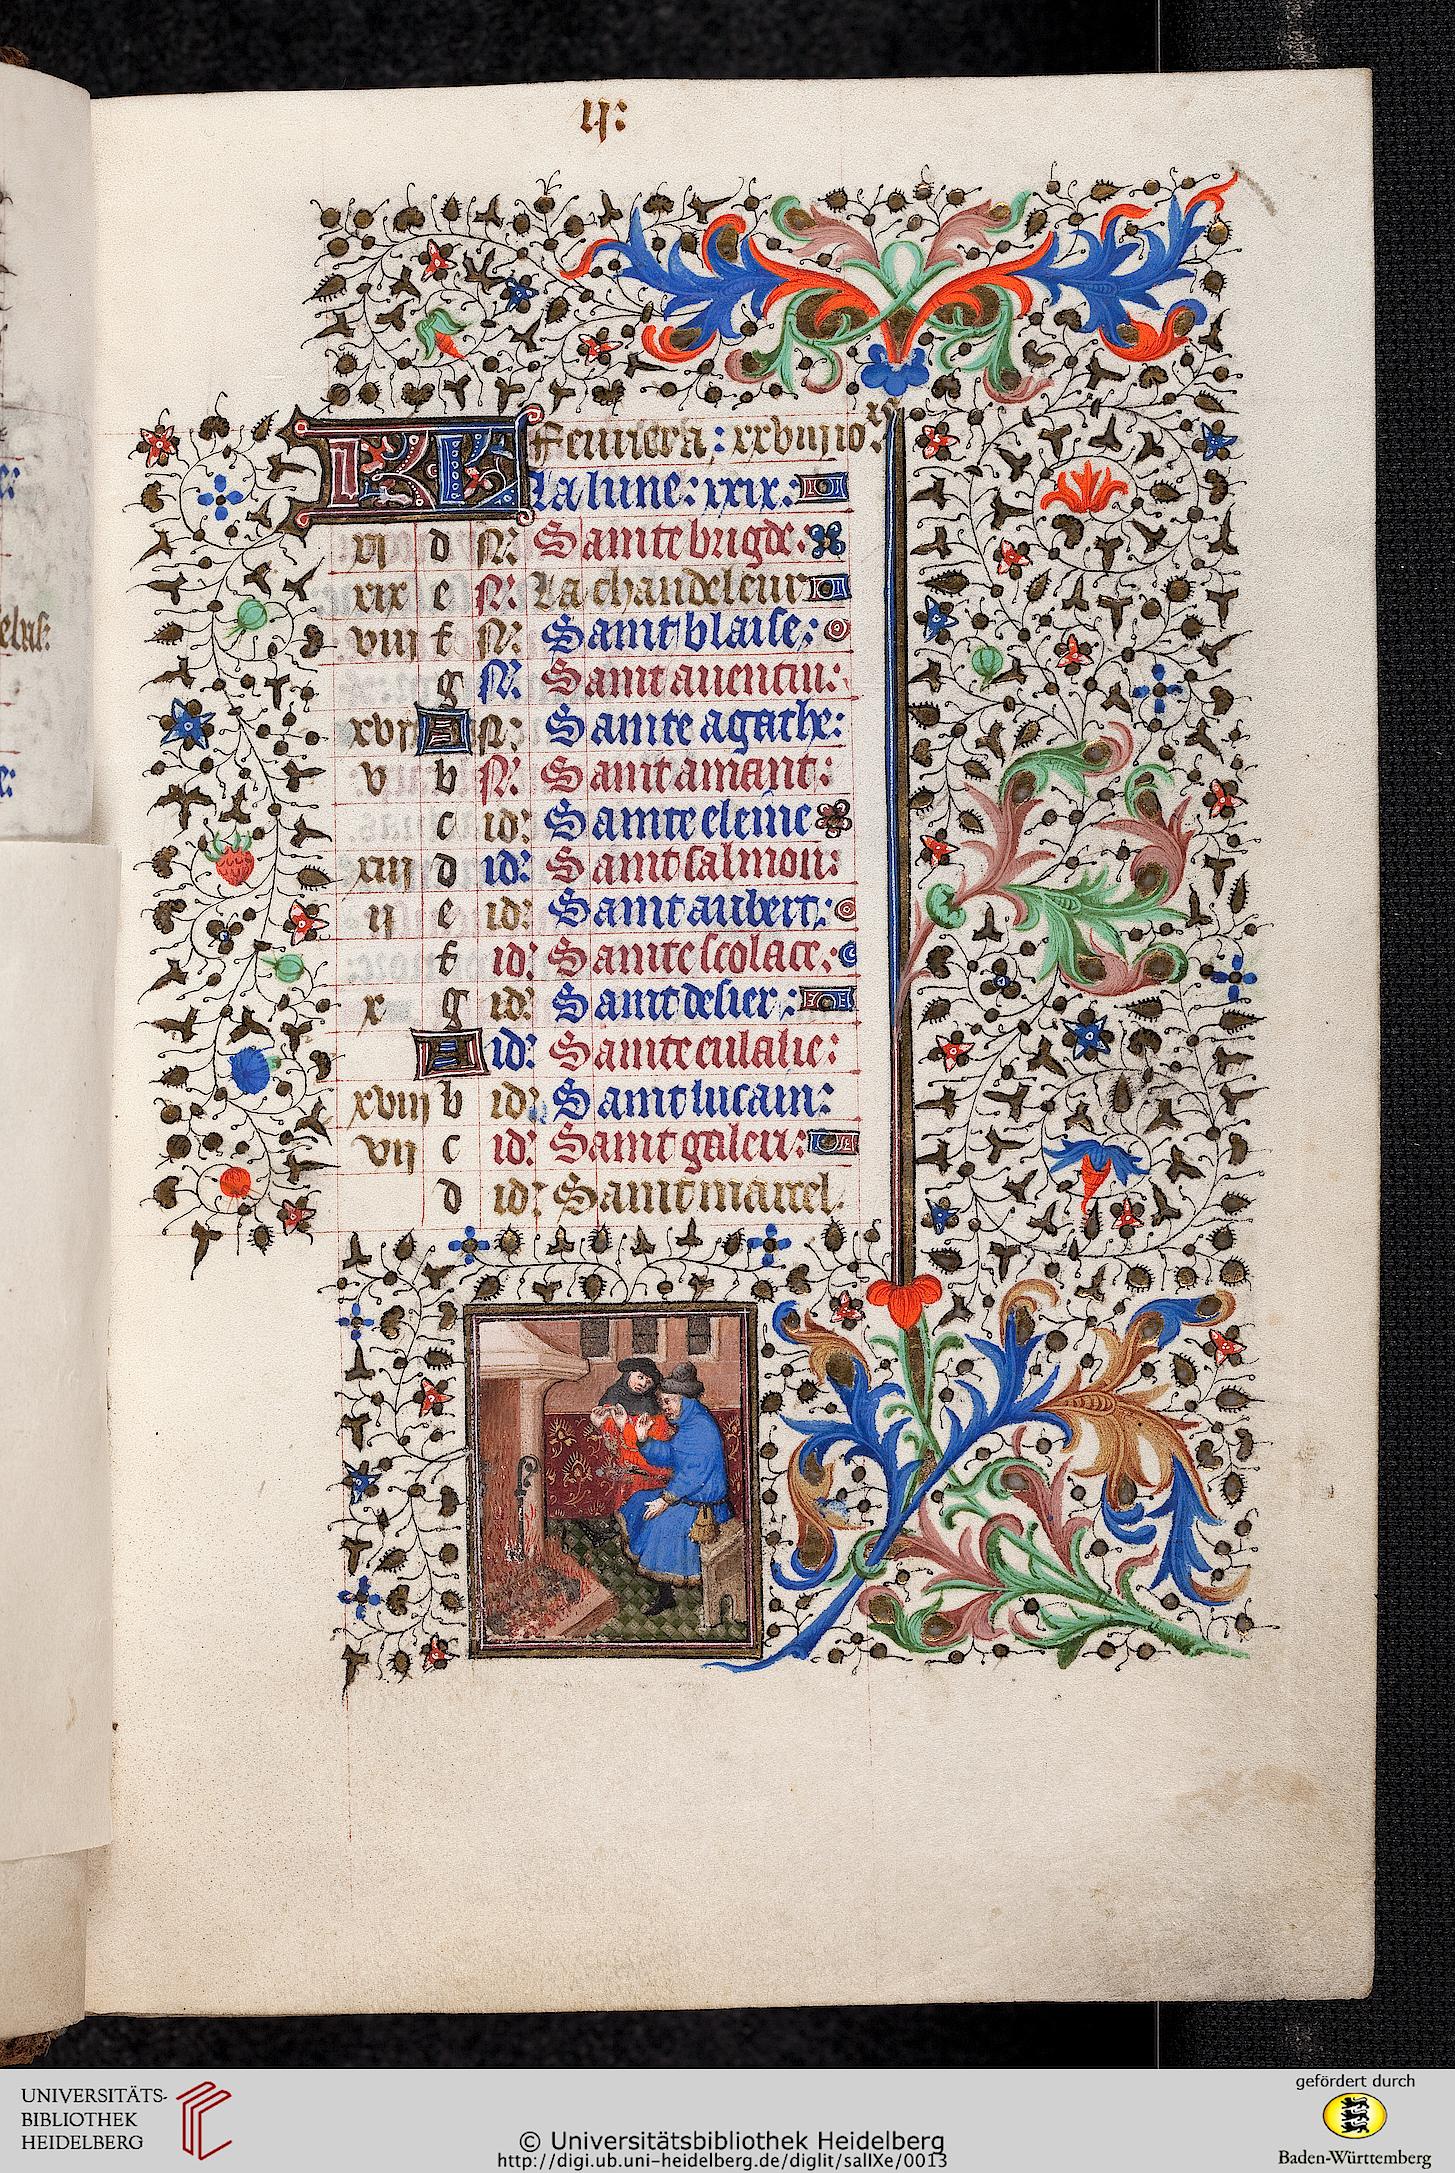 ij:
KL Feuriera: xxviij io.rs
La lune: xxix:
xj d N: Sainte brigde:
xix e N: La chandeleur
viij f N: Saint blaise:
g N: Saint auentin:
xvj A N: Sainte agathe:
v b N: Saint amant:
c id: Sainte eleine
xiij d id: Saint salmon:
ij e id: Saint aubert:
f id: Sainte scolace:
x g id: Saint desier:
A id: Sainte eulalie:
xviij b id: Saint lucain:
vij c id: Saint galeri:
d id: Saint marcel.
UNIVERSITÄTS-
BIBLIOTHEK
HEIDELBERG
© Universitätsbibliothek Heidelberg
http://digi.ub.uni-heidelberg.de/diglit/salIXe/0013
gefördert durch
Baden-Württemberg